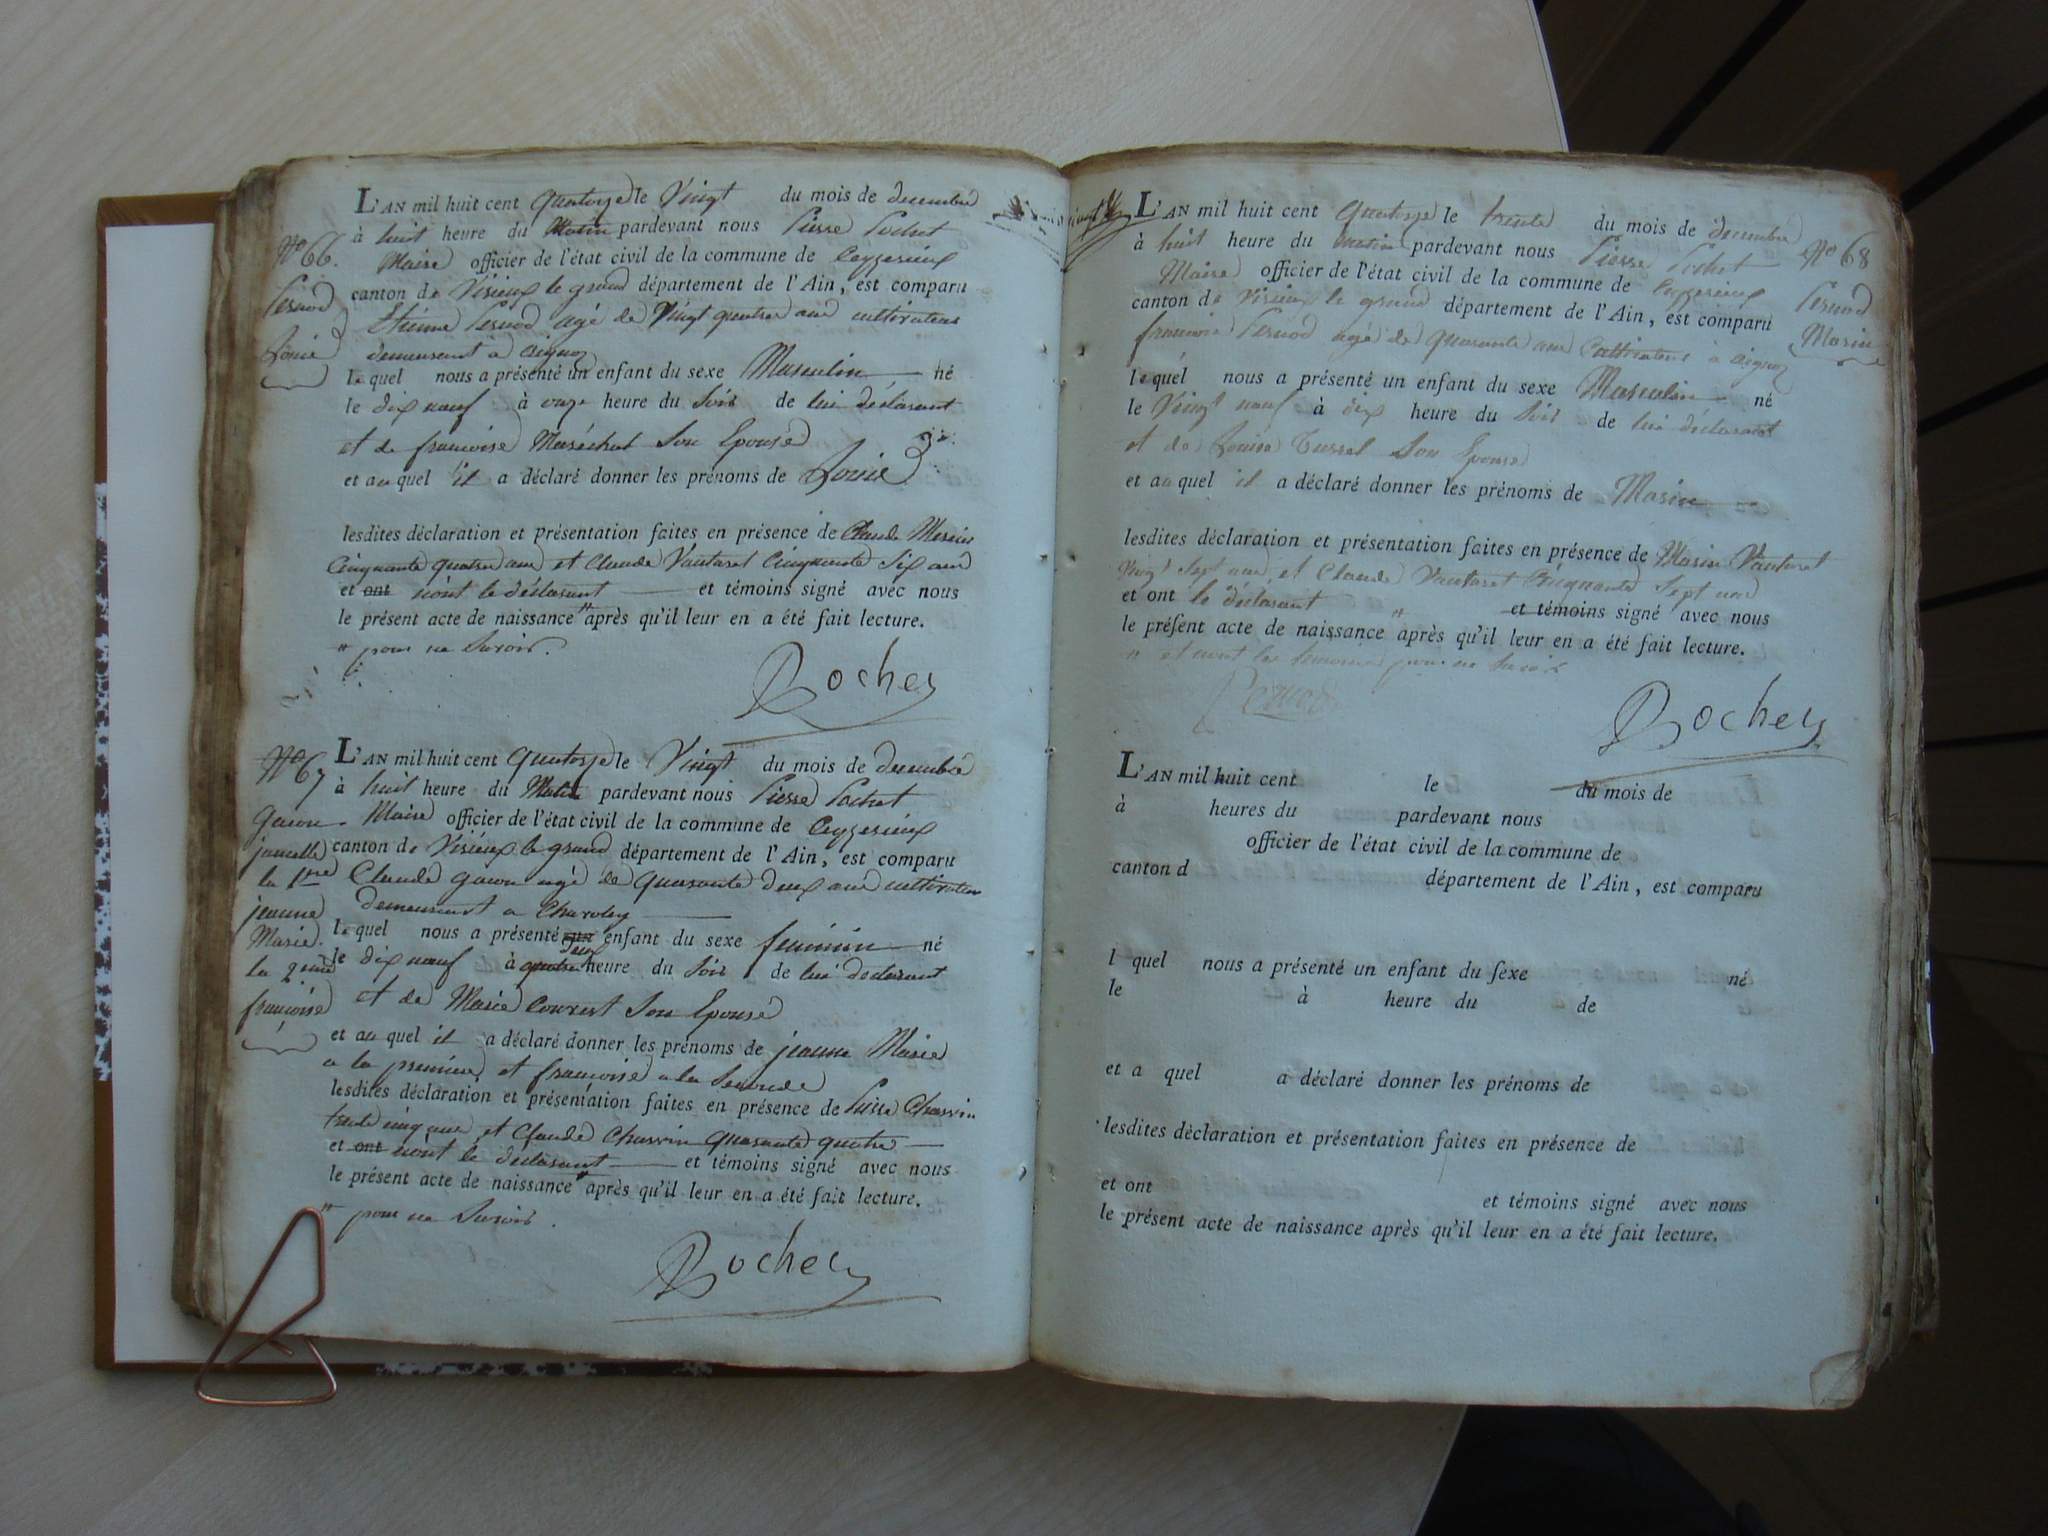 L'AN mil huit cent quatorze le Vingt du mois de decembre
à huit heure du Matin pardevant nous Pierre Pochet
Maire officier de l'état civil de la commune de Ceyzerieux
canton de Virieux le grand département de l'Ain, est comparu
Etienne Pernod agé de Vingt quatre ans cultivateur
demeurant a aignoz
lequel nous a présenté un enfant du sexe Masculin né
le dix neuf à onze heure du Soir de lui déclarant
et de francoise Maréchal Son Epouse
et au quel il a déclaré donner les prénoms de Louis
lesdites déclaration et présentation faites en présence de Claude Mercier
Cinquante quatre ans et Claude Vautaret Cinquante Six ans
et ont n'ont le déclarant et témoins signé avec nous
le présent acte de naissance " après qu'il leur en a été fait lecture.
" pour ne Savoir.
Pochet
No 66.
Pernod
Louis
L'AN mil huit cent quatorze le Vingt du mois de decembre
à huit heure du Matin pardevant nous Pierre Pochet
Maire officier de l'état civil de la commune de Ceyzerieux
canton de Virieux le grand département de l'Ain, est comparu
Claude gacon agé de quarante deux ans cultivateur
demeurant a Charoley
lequel nous a présenté un deux enfant du sexe feminin né
le dix neuf à quatre heure du Soir de lui declarant
et de Marie Son Epouse
et au quel il a déclaré donner les prénoms de jeanne Marie
a la premiere et francoise a la Seconde
lesdites déclaration et présentation faites en présence de Pierre Charvin
trente cinq ans et Claude Charvin quarante quatre
et ont n'ont le declarant et témoins signé avec nous
le présent acte de naissance " après qu'il leur en a été fait lecture.
" pour ne Savoir.
Pochet
No 67
gacon
jumelle
la 1ere
jeanne
Marie.
la 2me
francoise
L'AN mil huit cent quatorze le trente du mois de decembre
à huit heure du matin pardevant nous Pierre Pochet
Maire officier de l'état civil de la commune de Ceyzerieux
canton de Virieux le grand département de l'Ain, est comparu
francois Pernod agé de quarante ans Cultivateur à aignoz
lequel nous a présenté un enfant du sexe Masculin né
le Vingt neuf à dix heure du Soir de lui déclarant
et de Louise Son Epouse
et au quel il a déclaré donner les prénoms de Marin
lesdites déclaration et présentation faites en présence de Marin Vautaret
Vingt Sept ans et Claude Vautaret Cinquante Sept ans
et ont le déclarant " et témoins signé avec nous
le présent acte de naissance après qu'il leur en a été fait lecture.
" et n'ont les temoins pour ne Savoir
Pernod
Pochet
No 68
Pernod
Marin
L'AN mil huit cent le du mois de
à heures du pardevant nous
officier de l'état civil de la commune de
canton d département de l'Ain, est comparu
l quel nous a présenté un enfant du sexe né
le à heure du de
et a quel a déclaré donner les prénoms de
lesdites déclaration et présentation faites en présence de
et ont et témoins signé avec nous
le présent acte de naissance après qu'il leur en a été fait lecture.